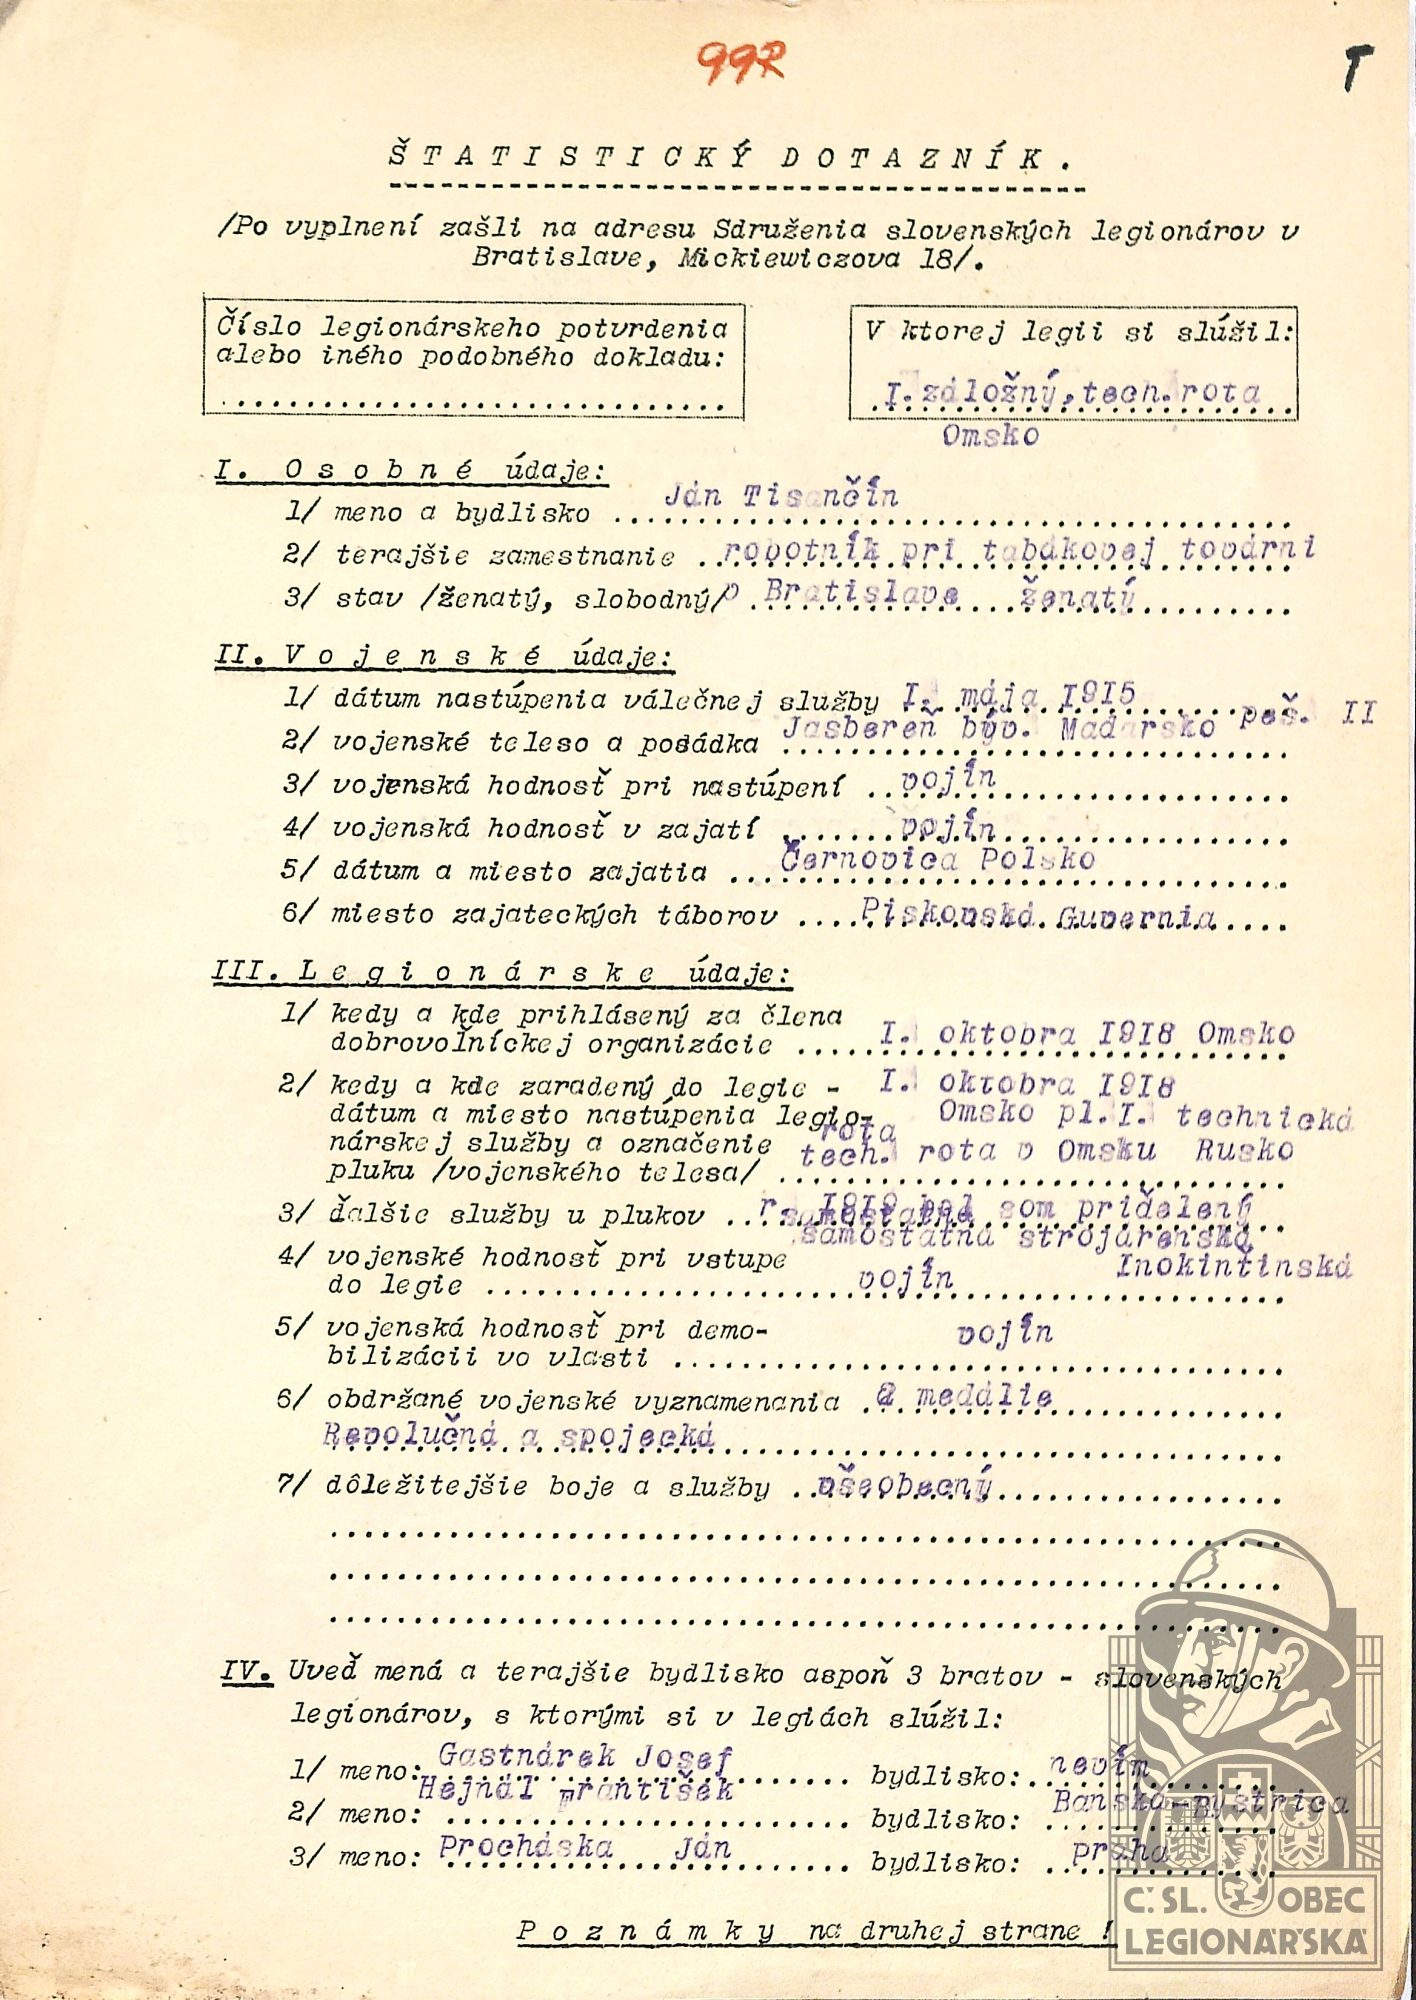 99R
T
ŠTATISTICKÝ DOTAZNÍK.
/Po vyplnení zašli na adresu Sdruženia slovenských legionárov v
Bratislave, Mickiewiczova 18/.
Číslo legionárskeho potvrdenia
alebo iného podobného dokladu:
V ktorej legii si slúžil:
I. záložný, tech. rota
Omsko
I. Osobné údaje:
1/ meno a bydlisko Ján Tisančín
2/ terajšie zamestnanie robotník pri tabákovej továrni
3/ stav /ženatý, slobodný/ v Bratislave ženatý
II. Vojenské údaje:
1/ dátum nastúpenia válečnej služby I. mája 1915
2/ vojenské teleso a posádka Jasbereň býv. Maďarsko peš. II
3/ vojenská hodnosť pri nastúpení vojín
4/ vojenská hodnosť v zajatí vojín
5/ dátum a miesto zajatia Černovica Polsko
6/ miesto zajateckých táborov Piskovská Guvernia
III. Legionárske údaje:
1/ kedy a kde prihlásený za člena
dobrovoľníckej organizácie I. oktobra 1918 Omsko
2/ kedy a kde zaradený do legie - I. oktobra 1918
dátum a miesto nastúpenia legio- Omsko pl. I. technická
nárskej služby a označenie rota
pluku /vojenského telesa/ tech. rota v Omsku Rusko
3/ ďalšie služby u plukov r. 1919 bol som pridelený
samostatná strojárenská
4/ vojenské hodnosť pri vstupe Inokintinská
do legie vojín
5/ vojenská hodnosť pri demo-
bilizácii vo vlasti vojín
6/ obdržané vojenské vyznamenania 2 medálie
Revolučná a spojecká
7/ dôležitejšie boje a služby všeobecný
IV. Uveď mená a terajšie bydlisko aspoň 3 bratov - slovenských
legionárov, s ktorými si v legiách slúžil:
1/ meno: Gastnárek Josef bydlisko: nevím
2/ meno: Hejnál František bydlisko: Banská-Bystrica
3/ meno: Procháska Ján bydlisko: Praha
Poznámky na druhej strane!
Č.SL. OBEC
LEGIONÁŘSKÁ